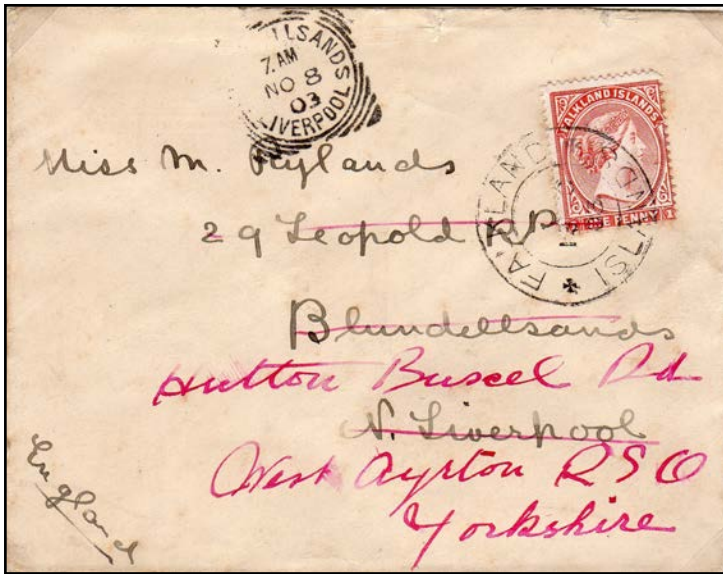 LLSANDS
7. AM
NO 8
03
LIVERPOOL
FALKLAND ISLANDS
ONE PENNY
FALKLAND ISLANDS
Miss M. Rylands
29 Leopold Rd
Blundellsands
Hutton Buscel Rd
N. Liverpool
West Ayrton RSO
Yorkshire
England